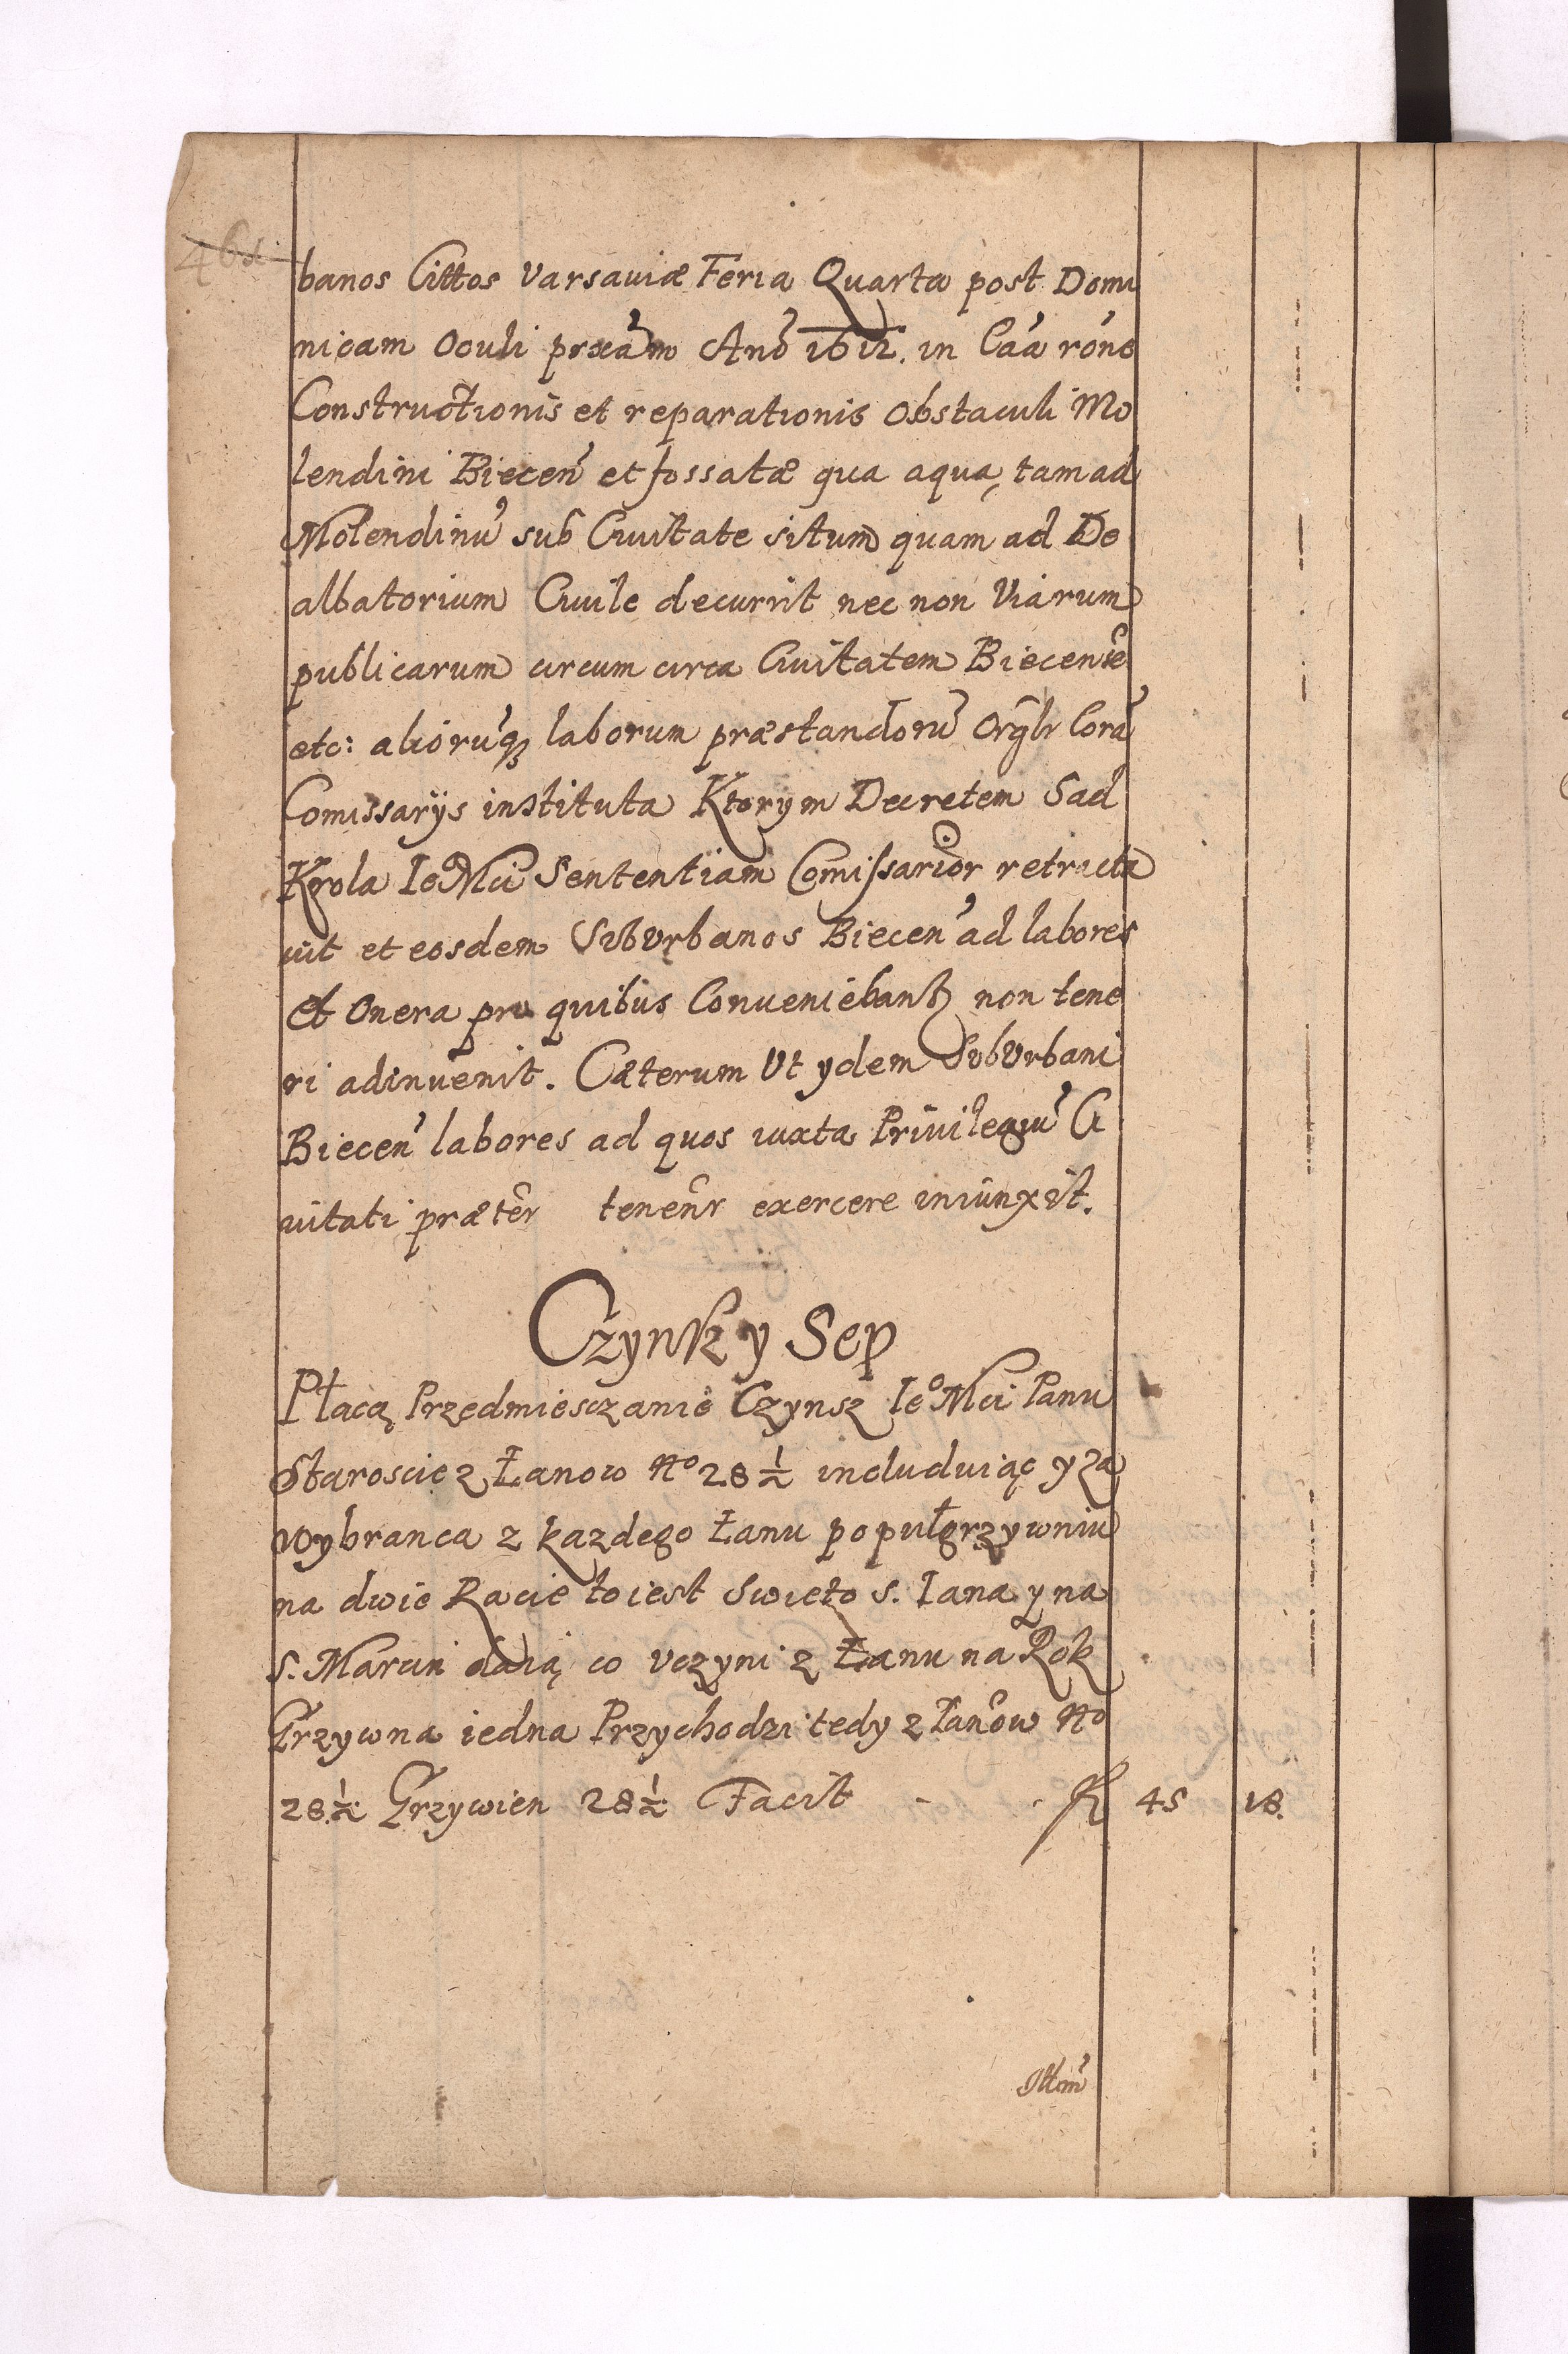 banos Cittos Varsauiæ Feria Quarta post Domi
nicam Oculi prxam Anō 1612. in Cāa rōne
Constructionis et reparationis Obstaculi Mo
lendini Biecen̄ et fossatæ qua aqua, tam ad
Molendinū sub Ciuitate situm quam ad De
albatorium Ciuile decurrit nec non Viarum
publicarum circum circa Ciuitatem Biecensē
etc: aliorūq3 laborum præstandorū Orgłr Corā
Comissarijs instituta Ktorym Decretem Sad
Krola IeMci Sententiam Comissarior retracta
uit et eosdem SubVrbanos Biecen̄ ad labores
et Onera pro quibus Conueniebant non tene
ri adinuenit. Cæterum Vt ydem SubVrbani
Biecen̄ labores ad quos iuxta Priuilegiū Ci
uitati præter tenenr exercere iniunxit.
Czynsz y Sep
Płacą Przedmiesczanie Czynsz Ie° Mci Panu
Staroscie z Łanow N° 28 1/2 includuiąc y za
Wybranca z kazdego Łanu po pułgrzywniu
na dwie Racie to iest Swięto S. Iana y na
S. Marcin daią, co vczyni z Łanu na Rok
Grzywna iedna Przychodzi tedy z Łanow N°
28 1/2 Grzywien 28 1/2 Facit - . fl 45 18.
Ittem̄